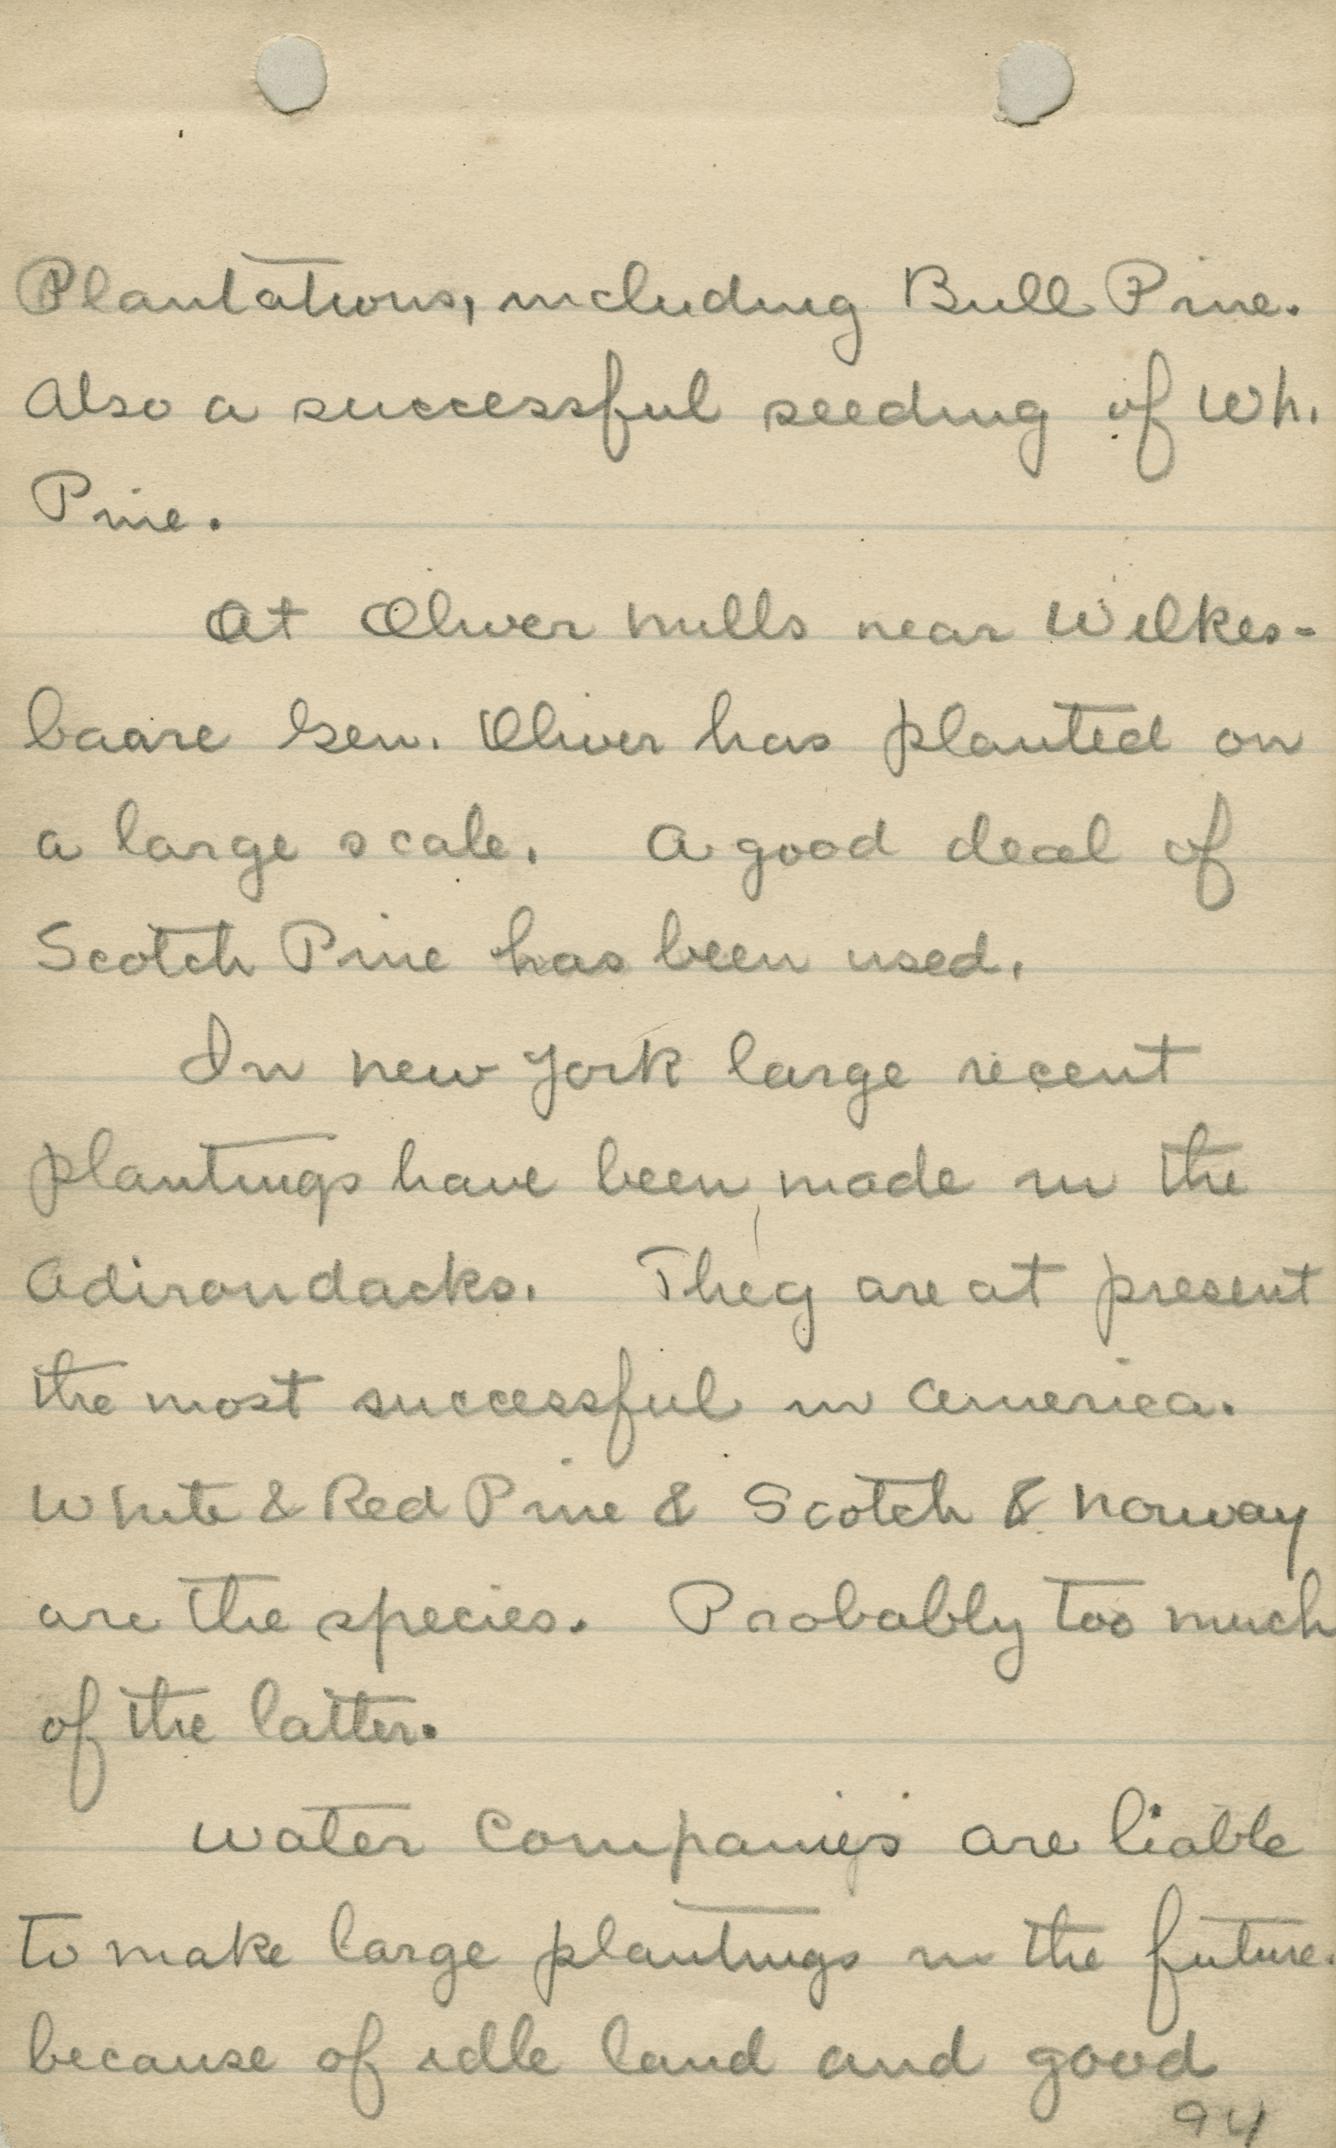 Plantations, including Bull Pine.
Also a successful seeding of Wh.
Pine.
At Oliver Mills near Wilkes-
baare Gen. Oliver has planted on
a large scale. A good deal of
Scotch Pine has been used.
In New York large recent
plantings have been made in the
Adirondacks. They are at present
the most successful in America.
White & Red Pine & Scotch & Norway
are the species. Probably too much
of the latter.
Water Companies are liable
to make large plantings in the future.
because of idle land and good
94